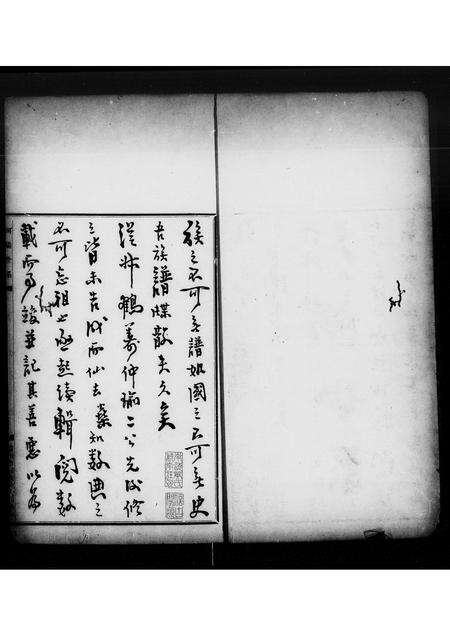 族之不可無譜如國之不可無史
吾族譜牒散失久矣
從叔鶴壽仲瑜二公先後修
之皆未告成而仙去桑知數典之
不可忘祖也亟起續輯閱數
載而事竣並記其善惡以為